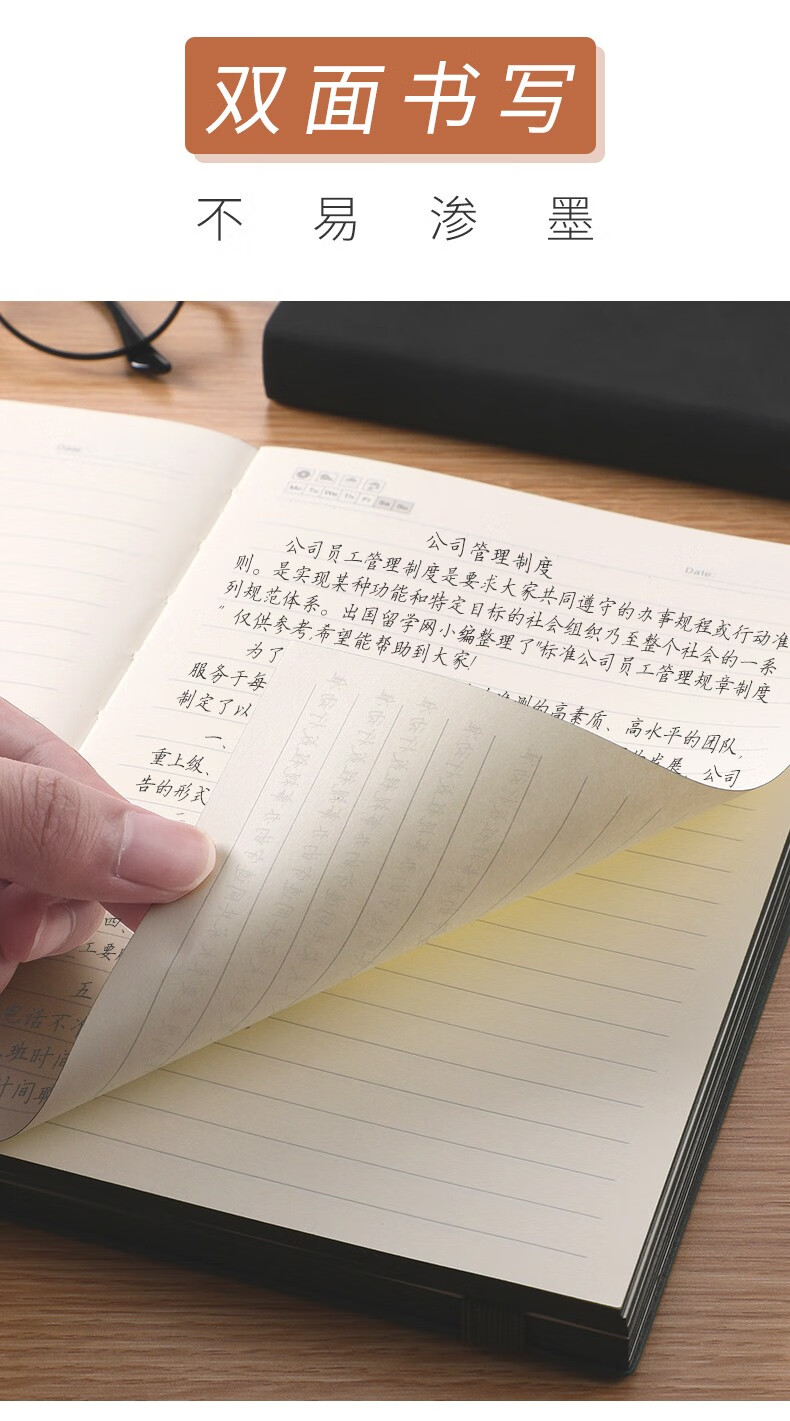 双面书写
不易渗墨
Date
Mo Tu We Th Fr Sa Su
Date
公司管理制度
公司员工管理制度是要求大家共同遵守的办事规程或行动准
则。是实现某种功能和特定目标的社会组织乃至整个社会的一系
列规范体系。出国留学网小编整理了"标准公司员工管理规章制度
"仅供参考,希望能帮助到大家!
为了
服务于每
的高素质、高水平的团队,
制定了以
公司
一、
重上级、
告的形式
四、
工要
五
电话不
班时间
时间